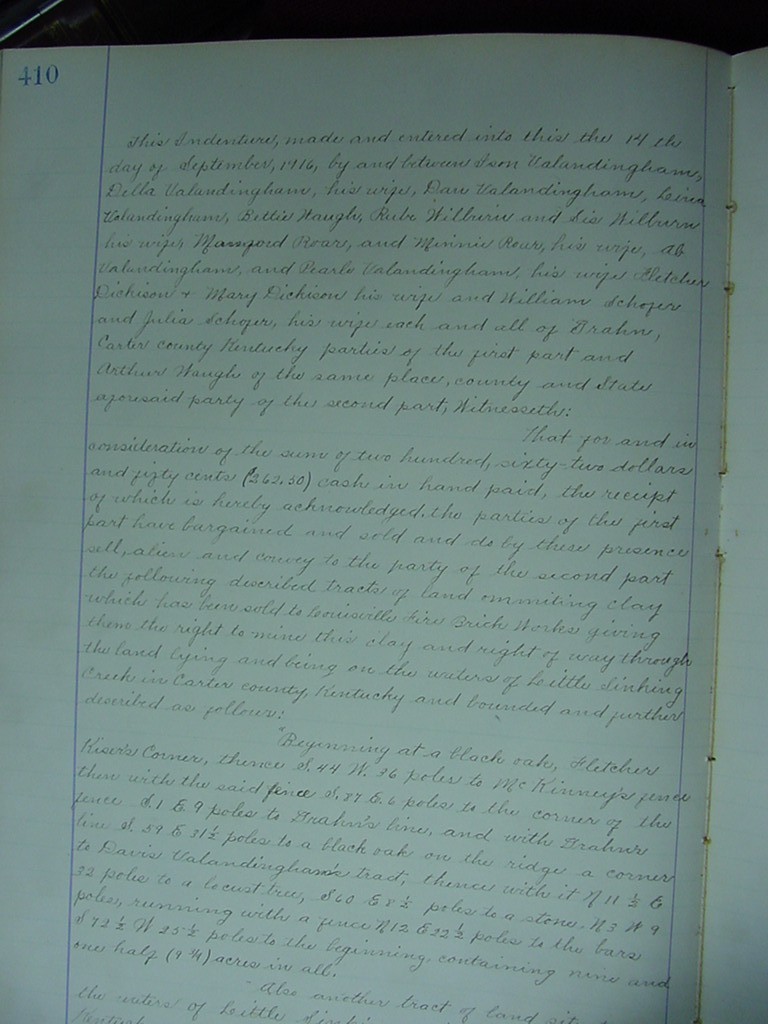 410
This Indenture, made and entered into this the 14 th
day of September, 1916, by and between Ison Valandingham,
Della Valandingham, his wife, Dan Valandingham,
Valandingham, Bettie Waugh, Rube Wilburn and Sis Wilburn
his wife, Roar, and Minnie Roar, his wife, Ab
Valandingham, and Pearle Valandingham, his wife Fletcher
Dickison + Mary Dickison his wife and William Schofer
and Julia Schofer, his wife each and all of Grahn,
Carter county Kentucky parties of the first part and
Arthur Waugh of the same place, county and State
aforesaid party of the second part, Witnesseth:
That for and in
consideration of the sum of two hundred, sixty-two dollars
and fifty cents ($262.50) cash in hand paid, the receipt
of which is hereby acknowledged, the parties of the first
part have bargained and sold and do by these presence
sell, alien and convey to the party of the second part
the following described tracts of land ommiting clay
which has been sold to Louisville Fire Brick Works giving
them the right to mine this clay and right of way through
the land lying and being on the waters of Little Sinking
Creek in Carter county, Kentucky and bounded and further
described as follows:
"Beginning at a black oak, Fletcher
Kiser's Corner, thence S. 44 W. 36 poles to McKinney's fence
then with the said fence S. 87 E. 6 poles to the corner of the
fence S. 1 E. 9 poles to Grahn's line, and with Grahn's
line S. 59 E 31½ poles to a black oak on the ridge a corner
to Davis Valandingham's tract, thence with it N 11 ½ E
32 poles to a locust tree, S 60 E 8 ½ poles to a stone, N 3 W 9
poles, running with a fence N 12 E 22 ½ poles to the bars
S 72 ½ W 25 ½ poles to the beginning, containing nine and
one half (9 ½) acres in all.
Also another tract of land
the waters of Little